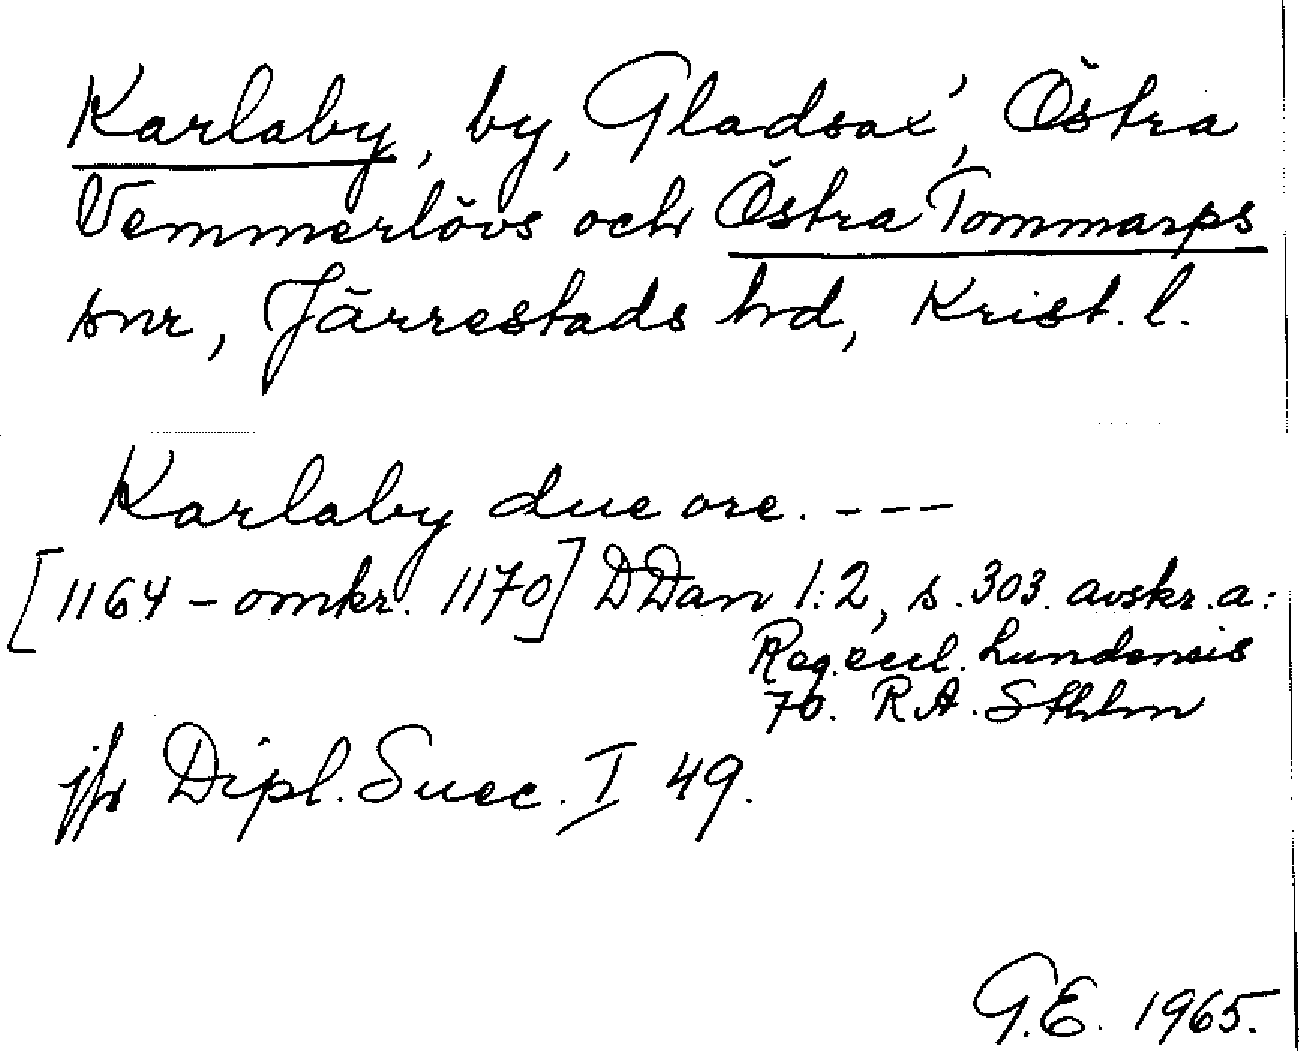 Karlaby, by, Gladsax', Östra
Vemmerlövs och Östra Tommarps
snr, Järrestads hd, Krist. l.
Karlaby due ore. ---
[1164 - omkr. 1170] DDan 1:2, s. 303. avskr. a:
Reg. eccl. Lundensis
70. R.A. Sthlm
jfr Dipl. Suec. I 49.
G.E. 1965.